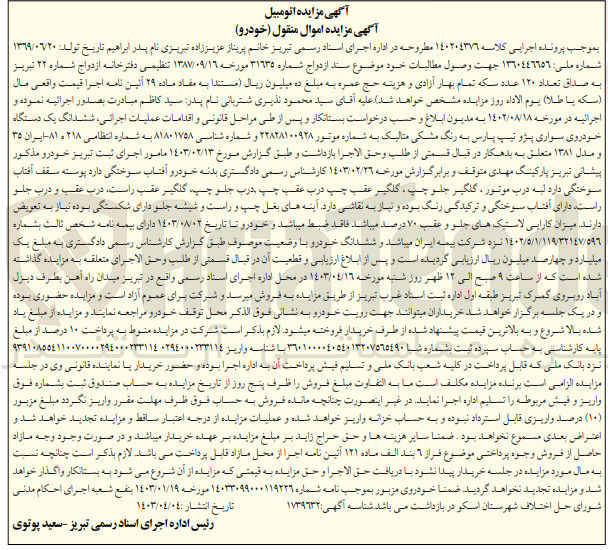 آگهی مزایده اتومبیل
آگهی مزایده اموال منقول (خودرو)
بموجب پرونده اجرایی کلاسه ۱۴۰۲۰۴۳۷۶ مطروحه در اداره اجرای اسناد رسمی تبریز خانم پریناز عزیززاده تبریزی نام پدر ابراهیم تاریخ تولد: ۱۳۶۹/۰۶/۲۰
شماره ملی: ۱۳۶۰۴۴۶۶۵۶ جهت وصول مطالبات خود موضوع سند ازدواج شماره ۳۱۶۳۵ مورخه ۱۳۸۷/۰۹/۱۶ تنظیمی دفترخانه ازدواج شماره ۲۲ تبریز
به صداق تعداد ۱۲۰ عدد سکه تمام بهار آزادی و هزینه حج عمره به مبلغ ده میلیون ریال (مستندا به مفاد ماده ۲۹ آئین نامه اجرا قیمت واقعی مال
(سکه یا طلا) یوم الاداء روز مزایده مشخص خواهد شد)علیه آقای سید محمود نذیری شتربانی نام پدر: سید کاظم مبادرت بصدور اجرائیه نموده و
اجرائیه در مورخه ۱۴۰۲/۰۸/۱۸ به مدیون ابلاغ و حسب درخواست بستانکار و پس از طی مراحل قانونی و اقدامات عملیات اجرائی، ششدانگ یک دستگاه
خودروی سواری پژو تیپ پارس به رنگ مشکی متالیک به شماره موتور ۲۲۸۲۸۱۰۰۹۲۸ و شماره شناسی ۸۱۸۰۱۷۵۸ به شماره انتظامی ۲۱۸ ه ۸۱-ایران ۳۵
و مدل ۱۳۸۱ متعلق به بدهکار در قبال قسمتی از طلب وحق الاجرا بازداشت و طبق گزارش مورخ ۱۴۰۳/۰۲/۱۳ مامور اجرای ثبت تبریز خودرو مذکور
پیشانی تبریز پارکینگ مهدی متوقف و برابرگزارش مورخه ۱۴۰۳/۰۲/۲۶ کارشناس رسمی دادگستری بدنه خودرو آفتاب سوختگی دارد پوسته سقف آفتاب
سوختگی دارد لبه درب موتور ، گلگیر جلو چپ ، گلگیر عقب چپ درب عقب چپ ,درب جلو چپ، گلگیر عقب راست، درب عقب و درب جلو
راست، دارای آفتاب سوختگی و ترکیدگی رنگ بوده و نیاز به نقاشی دارد آینه های بغل چپ و راست و شیشه جلو دارای شکستگی بوده نیاز به تعویض
دارند. میزان کارایی لاستیک های جلو و عقب ۷۰ درصد میباشد فاقد ضبط میباشد و خودرو تا تاریخ ۱۴۰۳/۰۸/۰۲ دارای بیمه نامه شخص ثالث بشماره
۱۴۰۲/۵/۱/۱۱۹/۳۲۱۴۷/۵۹۶ نزد شرکت بیمه ایران میباشد و ششدانگ خودرو با وضعیت موصوف طبق گزارش کارشناس رسمی دادگستری به مبلغ یک
میلیارد و چهارصد میلیون ریال ارزیابی گردیده است و پس از ابلاغ ارزیابی و قطعیت آن در قبال قسمتی از طلب وحق الاجرای متعلقه به مزایده گذاشته
شده است که از ساعت ۹ صبح الی ۱۲ ظهر روز شنبه مورخه ۱۴۰۳/۰۴/۱۶ در محل اداره اجرای اسناد رسمی واقع در تبریز میدان راه آهن بطرف دیزل
آباد روبروی گمرک تبریز طبقه اول اداره ثبت اسناد غرب تبریز از طریق مزایده به فروش میرسد و شرکت برای عموم آزاد است و مزایده حضوری بوده
و در یک جلسه برگزار خواهد شد خریداران میتوانند جهت رویت خودرو به نشانی فوق الذکر محل توقیف خودرو مراجعه نمایند و مزایده از مبلغ یاد
شده بالا شروع و به بالاترین قیمت پیشنهاد شده از طرف خریدار فروخته میشود. لازم بذکر است شرکت در مزایده منوط به پرداخت ۱۰ درصد از مبلغ
پایه کارشناسی به حساب سپرده ثبت بشماره شبا با شناسه واریز
نزد بانک ملی که قابل پرداخت در کلیه شعب بانک ملی و تسلیم فیش پرداخت آن به اداره اجرا بوده و حضور خریدار یا نماینده قانونی وی در جلسه
مزایده الزامی است برنده مزایده مکلف است ما به التفاوت مبلغ فروش را ظرف پنج روز از تاریخ مزایده به حساب صندوق ثبت بشماره فوق
واریز و فیش مربوطه را تسلیم اداره اجرا نماید. در غیر اینصورت چنانچه مانده فروش به حساب فوق ظرف مهلت مقرر واریز نگردد مبلغ مزبور
(۱۰) درصد واریزی قابل استرداد نبوده و به حساب خزانه واریز خواهد شده و عملیات مزایده از درجه اعتبار ساقط و مزایده تجدید خواهد شد و
اعتراض بعدی مسموع نخواهد بود . ضمنا سایر هزینه ها و حق حراج زاید بر مبلغ مزایده بر عهده خریدار میباشد و در صورت وجود وجه مازاد
حاصل از فروش وجوه پرداختی موضوع فراز ۶ بند الف ماده ۱۲۱ آئین نامه اجرا از محل مازاد قابل پرداخت می باشد. لازم بذکر است چنانچه نسبت
به مال مورد مزایده در جلسه خریدار پیدا نشود با دریافت حق الاجرا و حق مزایده به قیمتی که مزایده از آن شروع می شود به بستانکار واگذار خواهد
شد و مزایده تجدید نخواهد گردید. ضمنا خودروی مزبور بموجب نامه شماره ۱۴۰۳۳۰۹۹۰۰۰۱۱۹۲۲۶ مورخه ۱۴۰۳/۰۱/۱۹ بنفع شعبه اجرای احکام مدنی
شورای حل اختلاف شهرستان اسکو در بازداشت می باشد.شناسه آگهی:۱۷۳۹۶۳۲ تاریخ انتشار :۱۴۰۳/۰۴/۰۴
رئیس اداره اجرای اسناد رسمی تبریز -سعید پوتوی